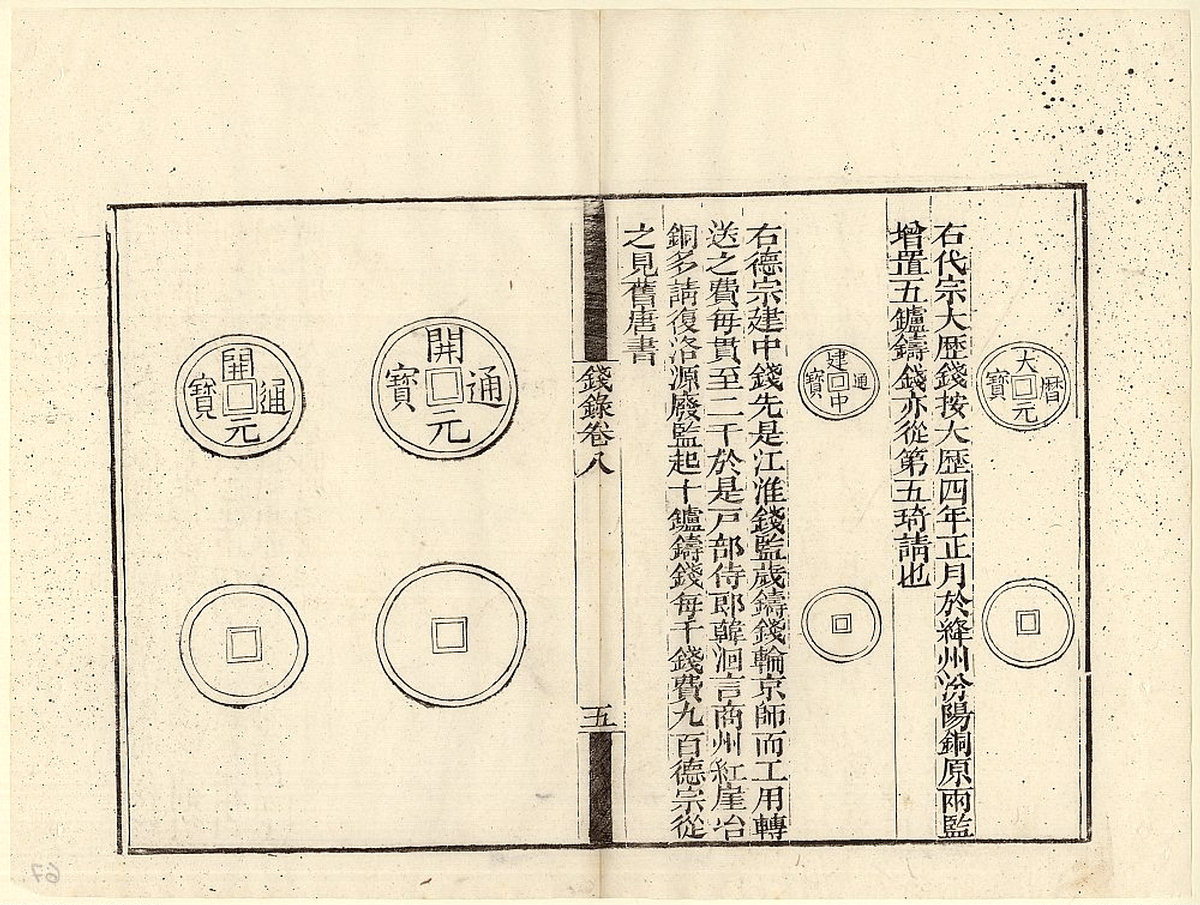 大暦元寶
右代宗大歷錢按大歷四年正月於絳州汾陽銅原兩監
增置五鑪鑄錢亦從第五琦請也
建中通寶
右德宗建中錢先是江淮錢監歲鑄錢輪京師而工用轉
送之費每貫至二千於是戸部侍郎韓洄言商州紅崖冶
銅多請復洛源廢監起十鑪鑄錢每千錢費九百德宗從
之見舊唐書
錢錄卷八
五
開元通寶
開元通寶
67